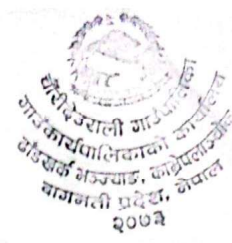 चौरीदेउराली गाउँपालिका
गाउँकार्यपालिकाको कार्यालय
भञ्ज्याङ, काभ्रेपलाञ्चोक
बागमती प्रदेश, नेपाल
२०७३